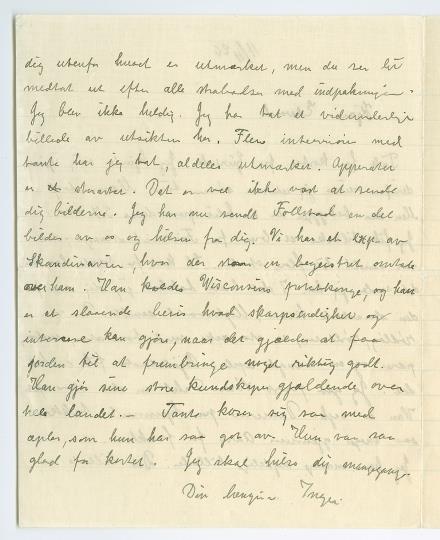 dig utenfor huset er utmærket, men du ser litt
medtat ut efter alle strabadser med indpakningen.
Jeg blev ikke heldig. Jeg har tat et vidunderlig
billede av utsikten her. Flere interviøu med
tante har jeg tat, aldeles utmærket. Apparatet
er storartet. Det er vet ikke værd at sende
dig billederne. Jeg har nu sendt Follestad en del
bilder av os og hilsen fra dig. Vi har et exp. av
Skandinavien, hvor der staar en begeistret omtale
over ham. Han kaldes Wisconsins potetkonge, og han
er et slaaende bevis hvad skarpsindighet og
interesse kan gjöre, naar det gjælder at faa
jorden til at frembringe noget riktig godt.
Han gjör sine store kundskaper gjældende over
hele landet. — Tante koser sig saa med
epler, som hun har saa godt av. Hun var saa
glad for kortet. Jeg skal hilse dig mangegange.
Din hengivne Inga.